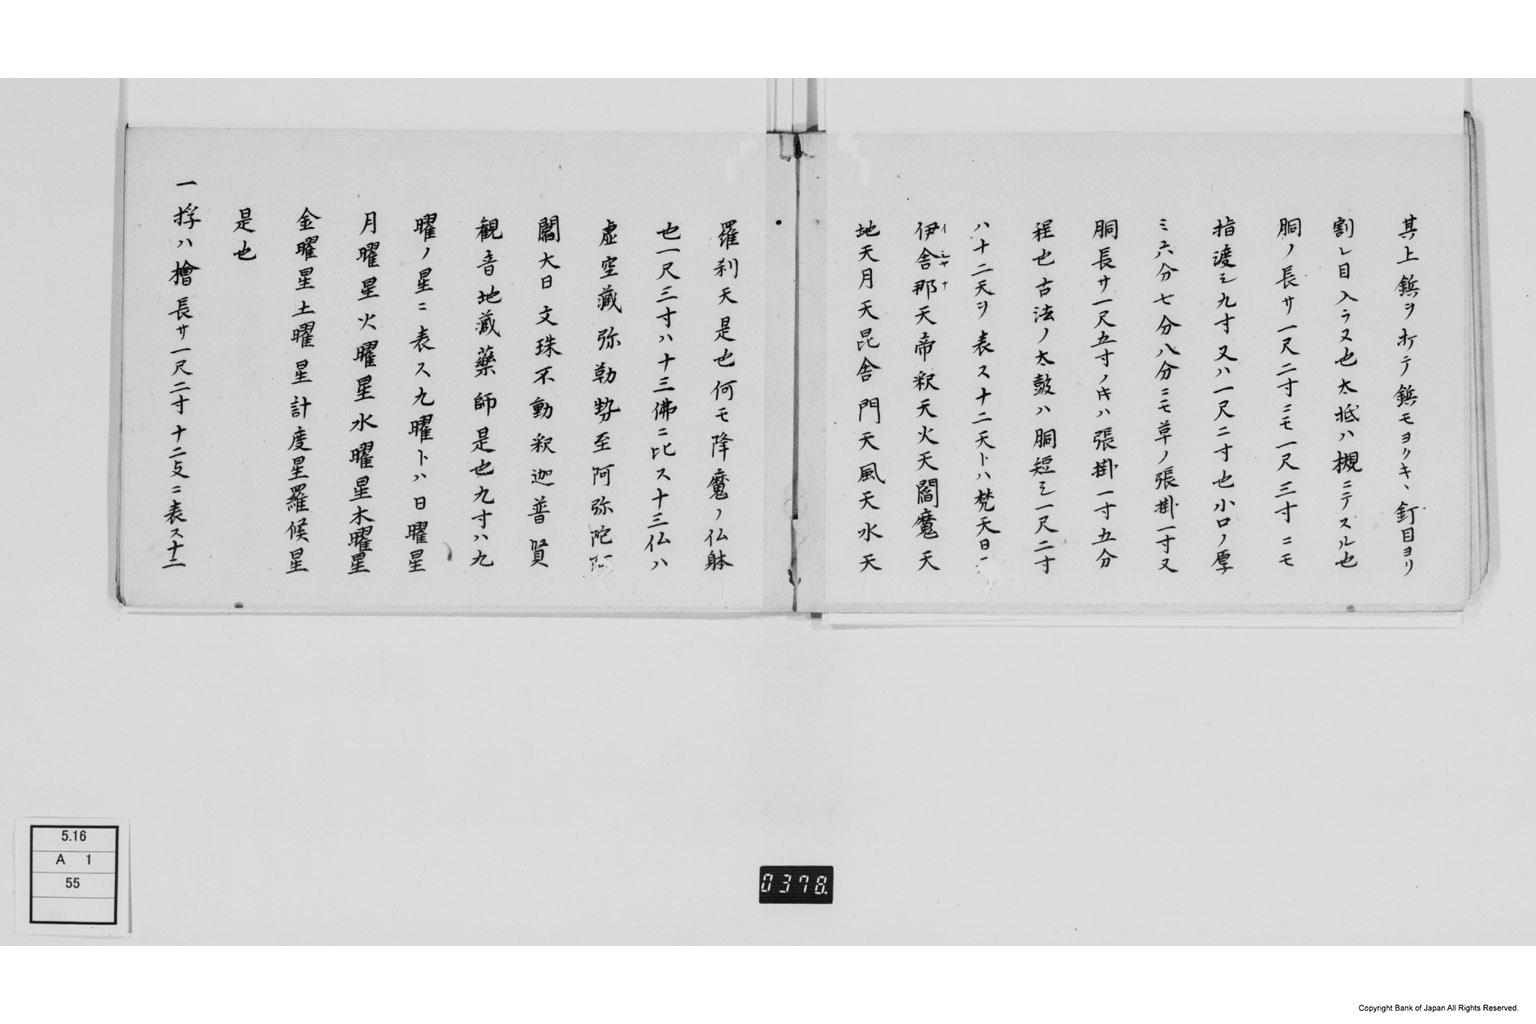 其上鋲ヲ打テ鋲モヨクキヽ釘目ヨリ
割レ目入ラヌ也太抵ハ槻ニテスル也
胴ノ長サ一尺二寸ニモ一尺三寸ニモ
指渡シ九寸又ハ一尺二寸也小口ノ厚
ミ六分七分八分ニモ草ノ張掛一寸又
胴長サ一尺五寸ノ㐧ハ張掛一寸五分
程也古法ノ太鼓ハ胴短シ一尺二寸
ハ十二天ヲ表ス十二天トハ梵天日
伊舎那天帝釈天火天閻魔天
イシヤナ
地天月天昆舎門天風天水天
羅刹天是也何モ降魔ノ仏躰
也一尺三寸ハ十三佛ニ比ス十三仏ハ
虚空蔵弥勒勢至阿弥陀阿
閦大日文珠不動釈迦普賢
観音地蔵薬師是也九寸ハ九
曜ノ星ニ表ス九曜トハ日曜星
月曜星火曜星水曜星木曜星
金曜星土曜星計度星羅候星
是也
一桴ハ檜長サ一尺二寸十二支ニ表ス十二
5.16
A 1
55
0378
Copyright Bank of Japan All Rights Reserved.